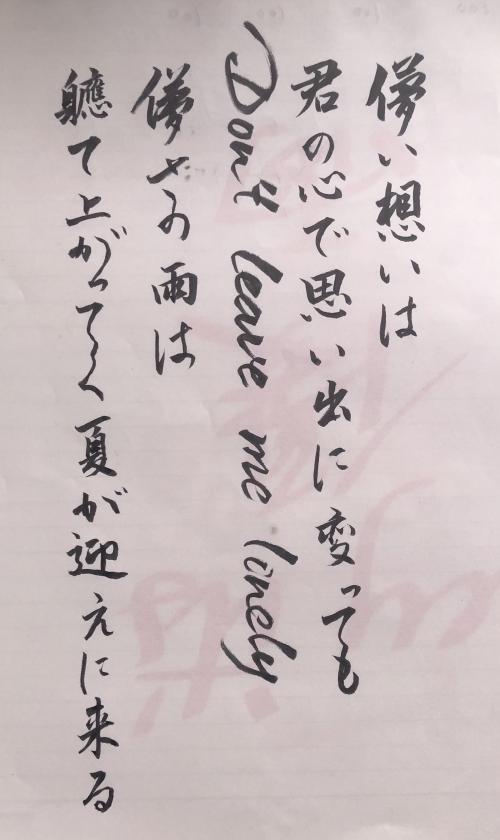 儚い想いは
君の心で思い出に変っても
Don't leave me lonely
儚さの雨は
軈て上がってく夏が迎えに来る